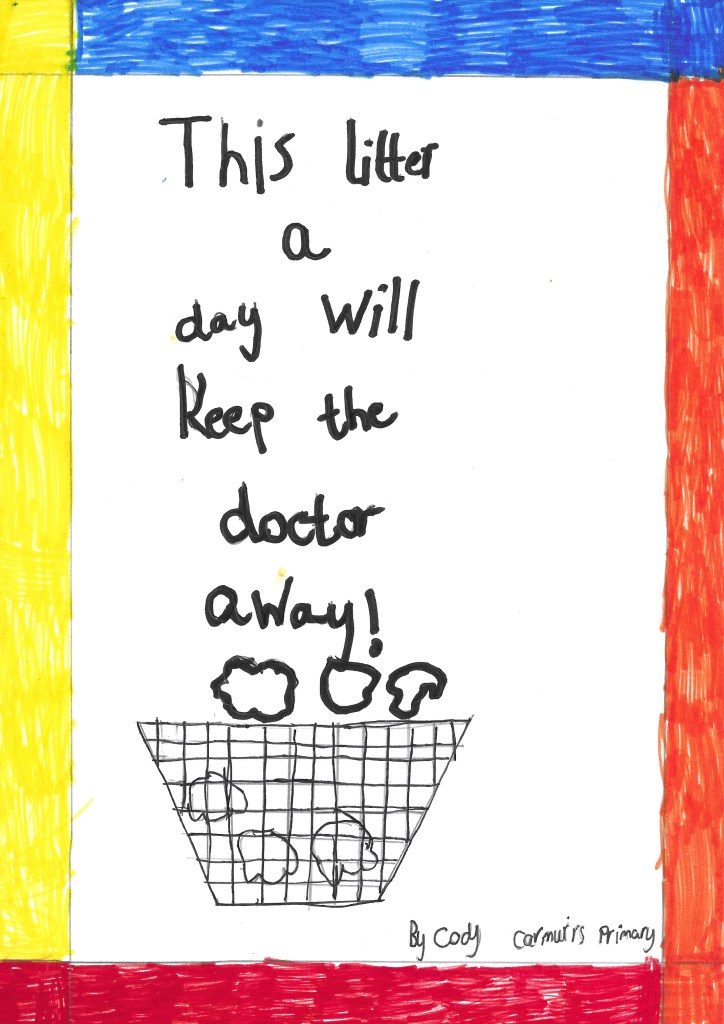 This litter
a
day Will
Keep the
doctor
away!
By Cody Carmuirs Primary